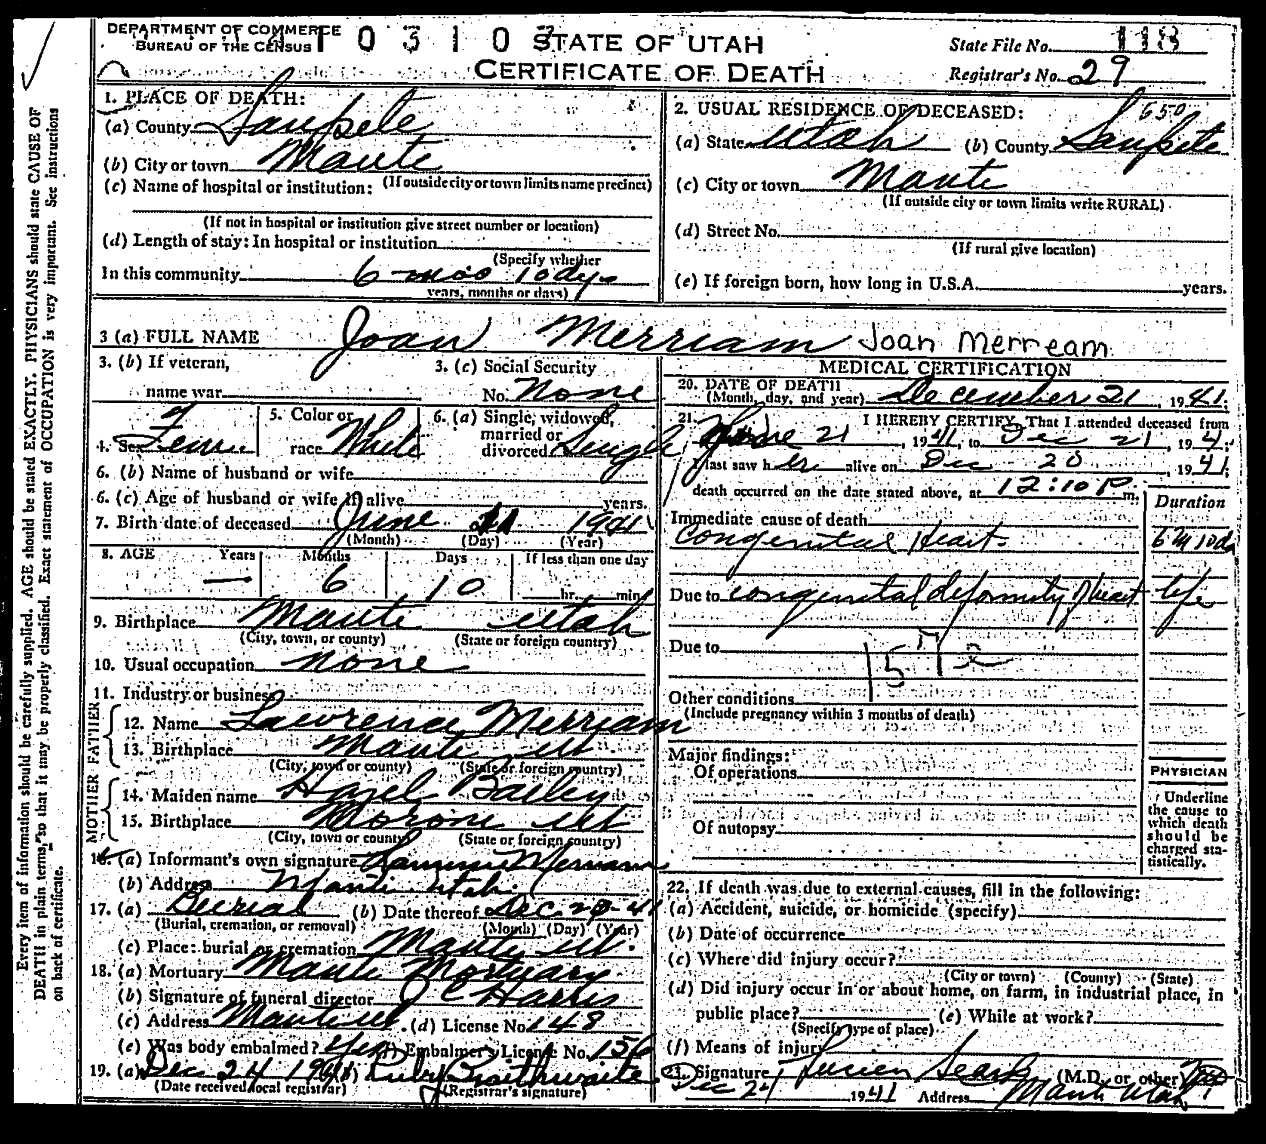 DEPARTMENT OF COMMERCE
BUREAU OF THE CENSUS
4103103
STATE OF UTAH
CERTIFICATE OF DEATH
State File No. 118
Registrar's No. 29
1. PLACE OF DEATH:
(a) County Sanpete
(b) City or town Manti
(If outside city or town limits name precinct)
(c) Name of hospital or institution:
(If not in hospital or institution give street number or location)
(d) Length of stay: In hospital or institution
(Specify whether
In this community 6 mos 10 dys
years, months or days)
2. USUAL RESIDENCE OF DECEASED: 650
(a) State Utah (b) County Sanpete
(c) City or town Manti
(If outside city or town limits write RURAL)
(d) Street No.
(If rural give location)
(e) If foreign born, how long in U.S.A. years.
3 (a) FULL NAME Joan Merriam Joan Merream
3. (b) If veteran,
name war
3. (c) Social Security
No. None
4. Sex Fem
5. Color or
race White
6. (a) Single, widowed,
married or
divorced Single
6. (b) Name of husband or wife
6. (c) Age of husband or wife if alive years.
7. Birth date of deceased June 11 1941
(Month) (Day) (Year)
8. AGE Years Months Days If less than one day
— 6 10 hr. min.
9. Birthplace Manti Utah
(City, town, or county) (State or foreign country)
10. Usual occupation none
11. Industry or business
FATHER
12. Name Lawrence Merriam
13. Birthplace Manti Ut
(City, town or county) (State or foreign country)
MOTHER
14. Maiden name Hazel Bailey
15. Birthplace Moroni Ut
(City, town or county) (State or foreign country)
16. (a) Informant's own signature
(b) Address Manti Utah.
17. (a) Burial (b) Date thereof Dec. 41
(Burial, cremation, or removal) (Month) (Day) (Year)
(c) Place: burial or cremation Manti Ut.
18. (a) Mortuary Manti Mortuary
(b) Signature of funeral director J C Harris
(c) Address Manti Ut. (d) License No. 148
(e) Was body embalmed? Yes (f) Embalmer's License No. 156
19. (a) Dec 24 1941 (b) Ruby Braithwaite
(Date received local registrar) (Registrar's signature)
MEDICAL CERTIFICATION
20. DATE OF DEATH
(Month, day, and year) December 21, 1941.
21. I HEREBY CERTIFY, That I attended deceased from
June 21, 1941, to Dec 21, 194
I last saw her alive on Dec 20, 1941.
death occurred on the date stated above, at 12:10 P m.
Duration
Immediate cause of death
Congenital Heart. 6 M 10 da
Due to congenital deformity of heart life
Due to
157
Other conditions
(Include pregnancy within 3 months of death)
Major findings:
Of operations
Of autopsy
PHYSICIAN
Underline
the cause to
which death
should be
charged sta-
tistically.
22. If death was due to external causes, fill in the following:
(a) Accident, suicide, or homicide (specify)
(b) Date of occurrence
(c) Where did injury occur?
(City or town) (County) (State)
(d) Did injury occur in or about home, on farm, in industrial place, in
public place? (e) While at work?
(Specify type of place)
(f) Means of injury
23. Signature Lucien Sears (M.D. or other)
Dec 24 1941 Address Manti Utah
Every item of information should be carefully supplied. AGE should be stated EXACTLY. PHYSICIANS should state CAUSE OF
DEATH in plain terms, so that it may be properly classified. Exact statement of OCCUPATION is very important. See instructions
on back of certificate.